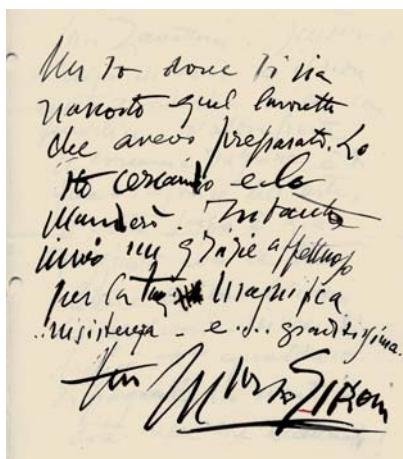 Non so dove si sia
nascosto quel lavoretto
che avevo preparato. Lo
sto cercando e lo
manderò. Intanto
invio un grazie affettuoso
per la tua magnifica
insistenza - e... graditissima.
tuo Mario Sironi